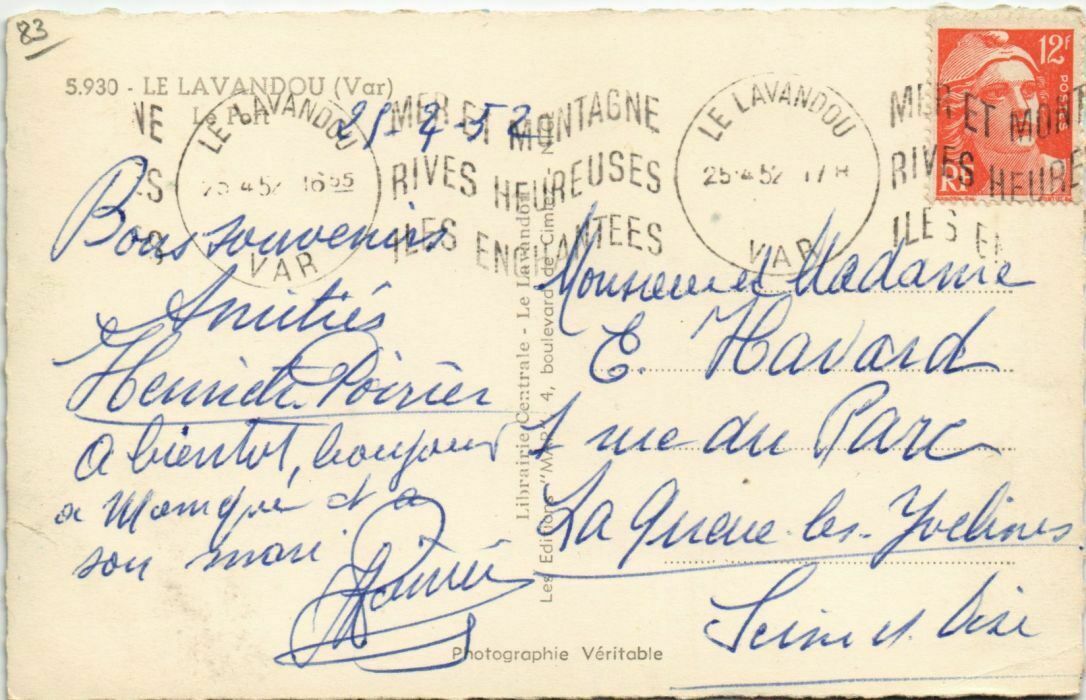 83
5.930 - LE LAVANDOU (Var)
Le Port
25-4-52
LE LAVANDOU
25 4 52 16 55
VAR
MER ET MONTAGNE
RIVES HEUREUSES
ILES ENCHANTEES
LE LAVANDOU
25-4 52 17 H
VAR
MER ET MONT
RIVES HEURE
ILES EN
12F
POSTES
RF
Bons souvenirs
Amitiés
Henriette Poirier
a bientot, bonjour
a Monique et a
son mari
Poirier
Librairie Centrale - Le Lavandou
Les Editions "MAR", 4, boulevard de Cimiez, N
Monsieur et Madame
E. Havard
1 rue du Parc
La Queue-les-Yvelines
Seine et Oise
Photographie Véritable